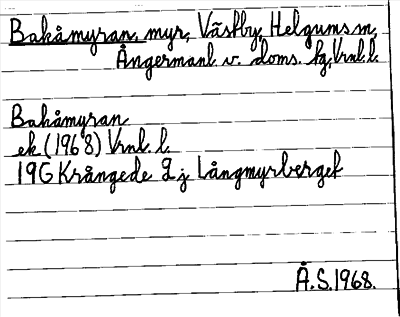 Bakåmyran, myr, Västby, Helgums sn,
Ångermanl. v. doms. hg, Vrnl. l.
Bakåmyran
ek (1968) Vrnl. l.
19G Krångede 2 j Långmyrberget
Å.S. 1968.